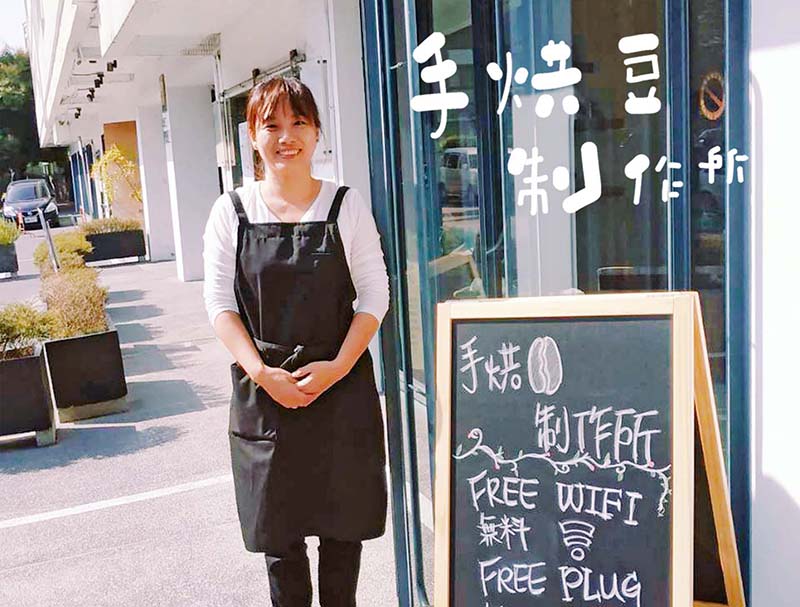 手烘豆
制作所
手烘
制作所
FREE WIFI
無料
FREE PLUG